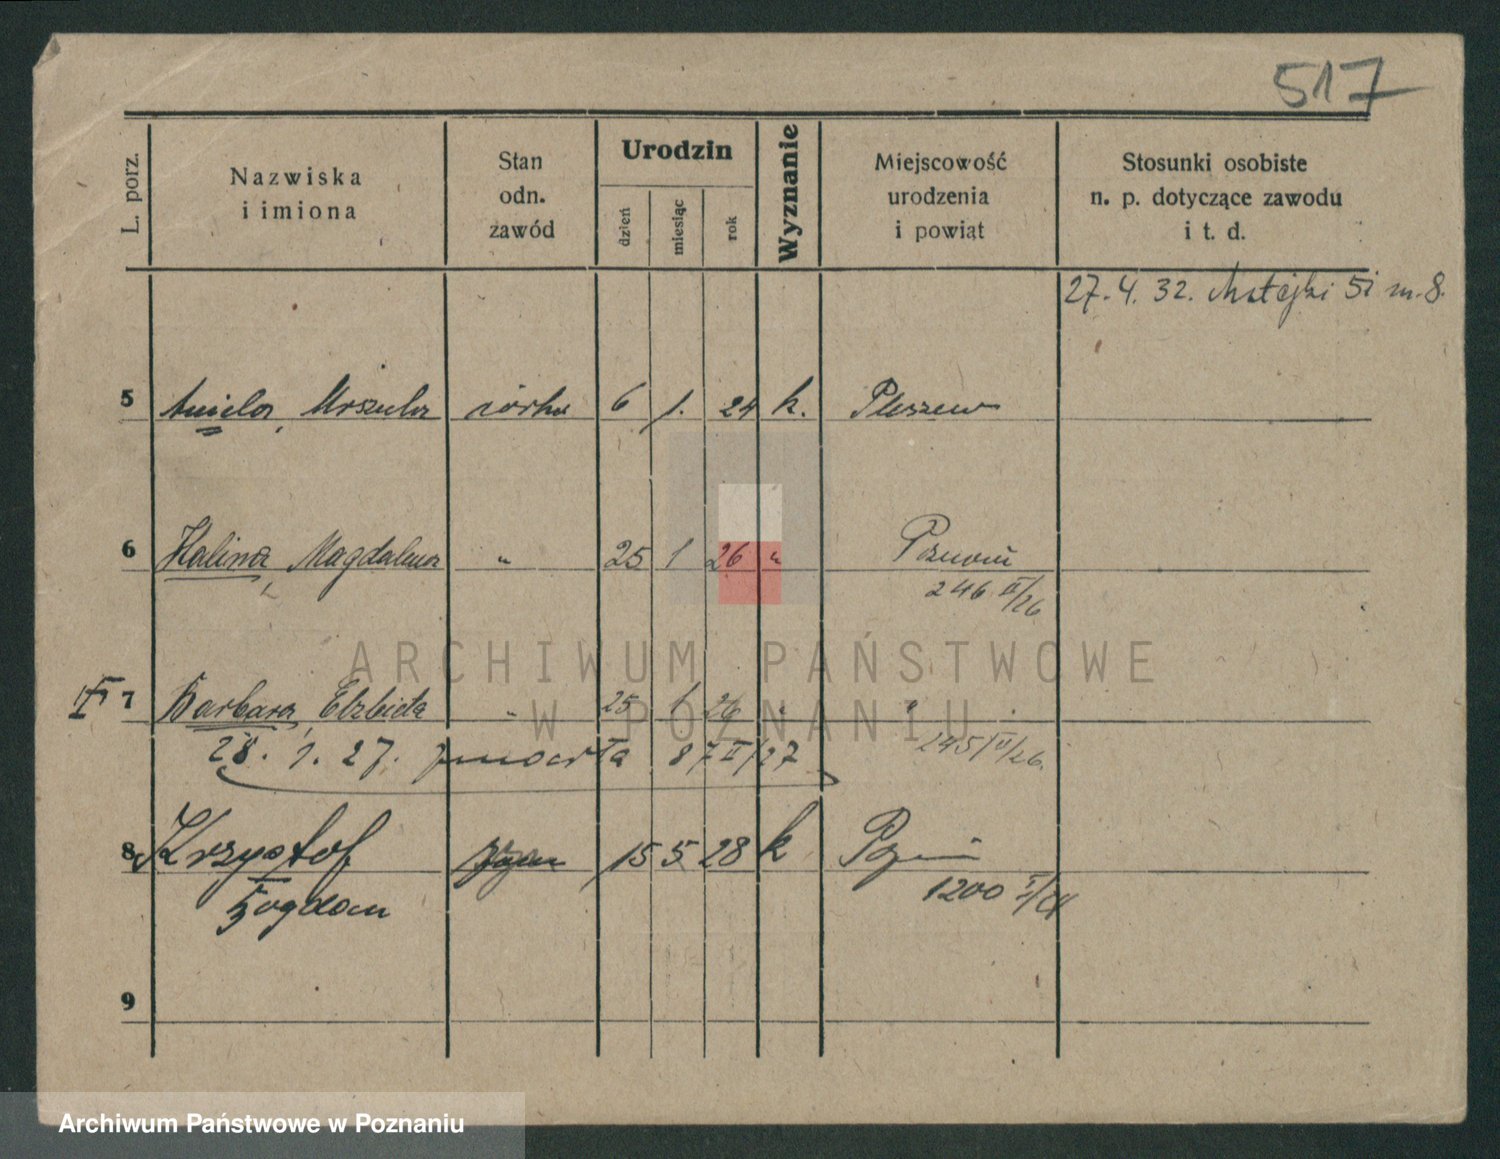 517
L. porz.
Nazwiska
i imiona
Stan
odn.
zawód
Urodzin
dzień
miesiąc
rok
Wyznanie
Miejscowość
urodzenia
i powiat
Stosunki osobiste
n. p. dotyczące zawodu
i t. d.
27. 4. 32. Matejki 51 m. 8.
5 Aniela, Urszula córka 6 1. 24 k. Pleszew
6 Halina, Magdalena " 25 1 26 " Poznań
246 II/26
7 Barbara, Elżbieta " 25 1 26 " "
245 II/26.
28. 1. 27. zmarła 87 II/27
8 Krzysztof 15 5 28 k Pozń
Bogdan
1200
9
ARCHIWUM PAŃSTWOWE
W POZNANIU
Archiwum Państwowe w Poznaniu